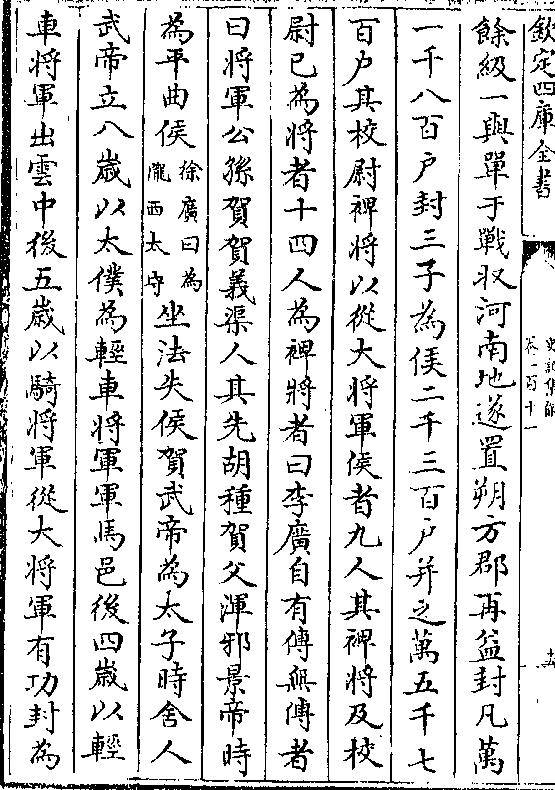 欽定四庫全書
史記集解
卷一百十一
餘級一與單于戰收河南地遂置朔方郡再益封凡萬
一千八百户封三子為侯二千三百户并之萬五千七
百户其校尉裨將以從大將軍侯者九人其裨將及校
尉已為將者十四人為裨將者曰李廣自有傳無傳者
曰將軍公孫賀賀義渠人其先胡種賀父渾邪景帝時
為平曲侯徐廣曰為隴西太守坐法失侯賀武帝為太子時舍人
武帝立八歳以太僕為輕車將軍軍馬邑後四歳以輕
車將軍出雲中後五歳以騎將軍從大將軍有功封為